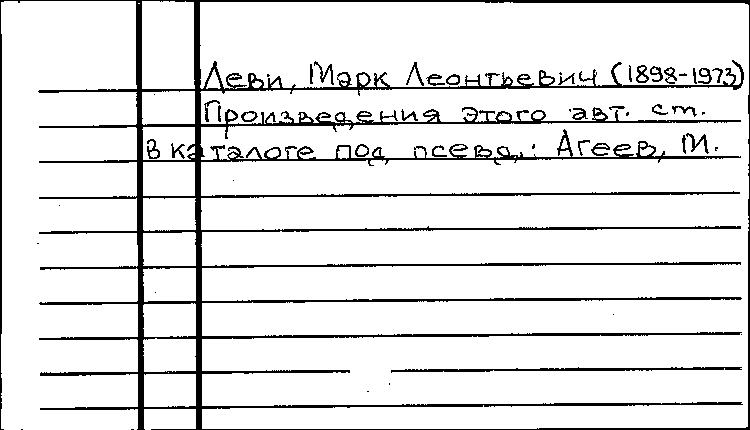 Леви, Марк Леонтьевич (1898-1973)
Произведения этого авт. см.
в каталоге под псевд.: Агеев, М.